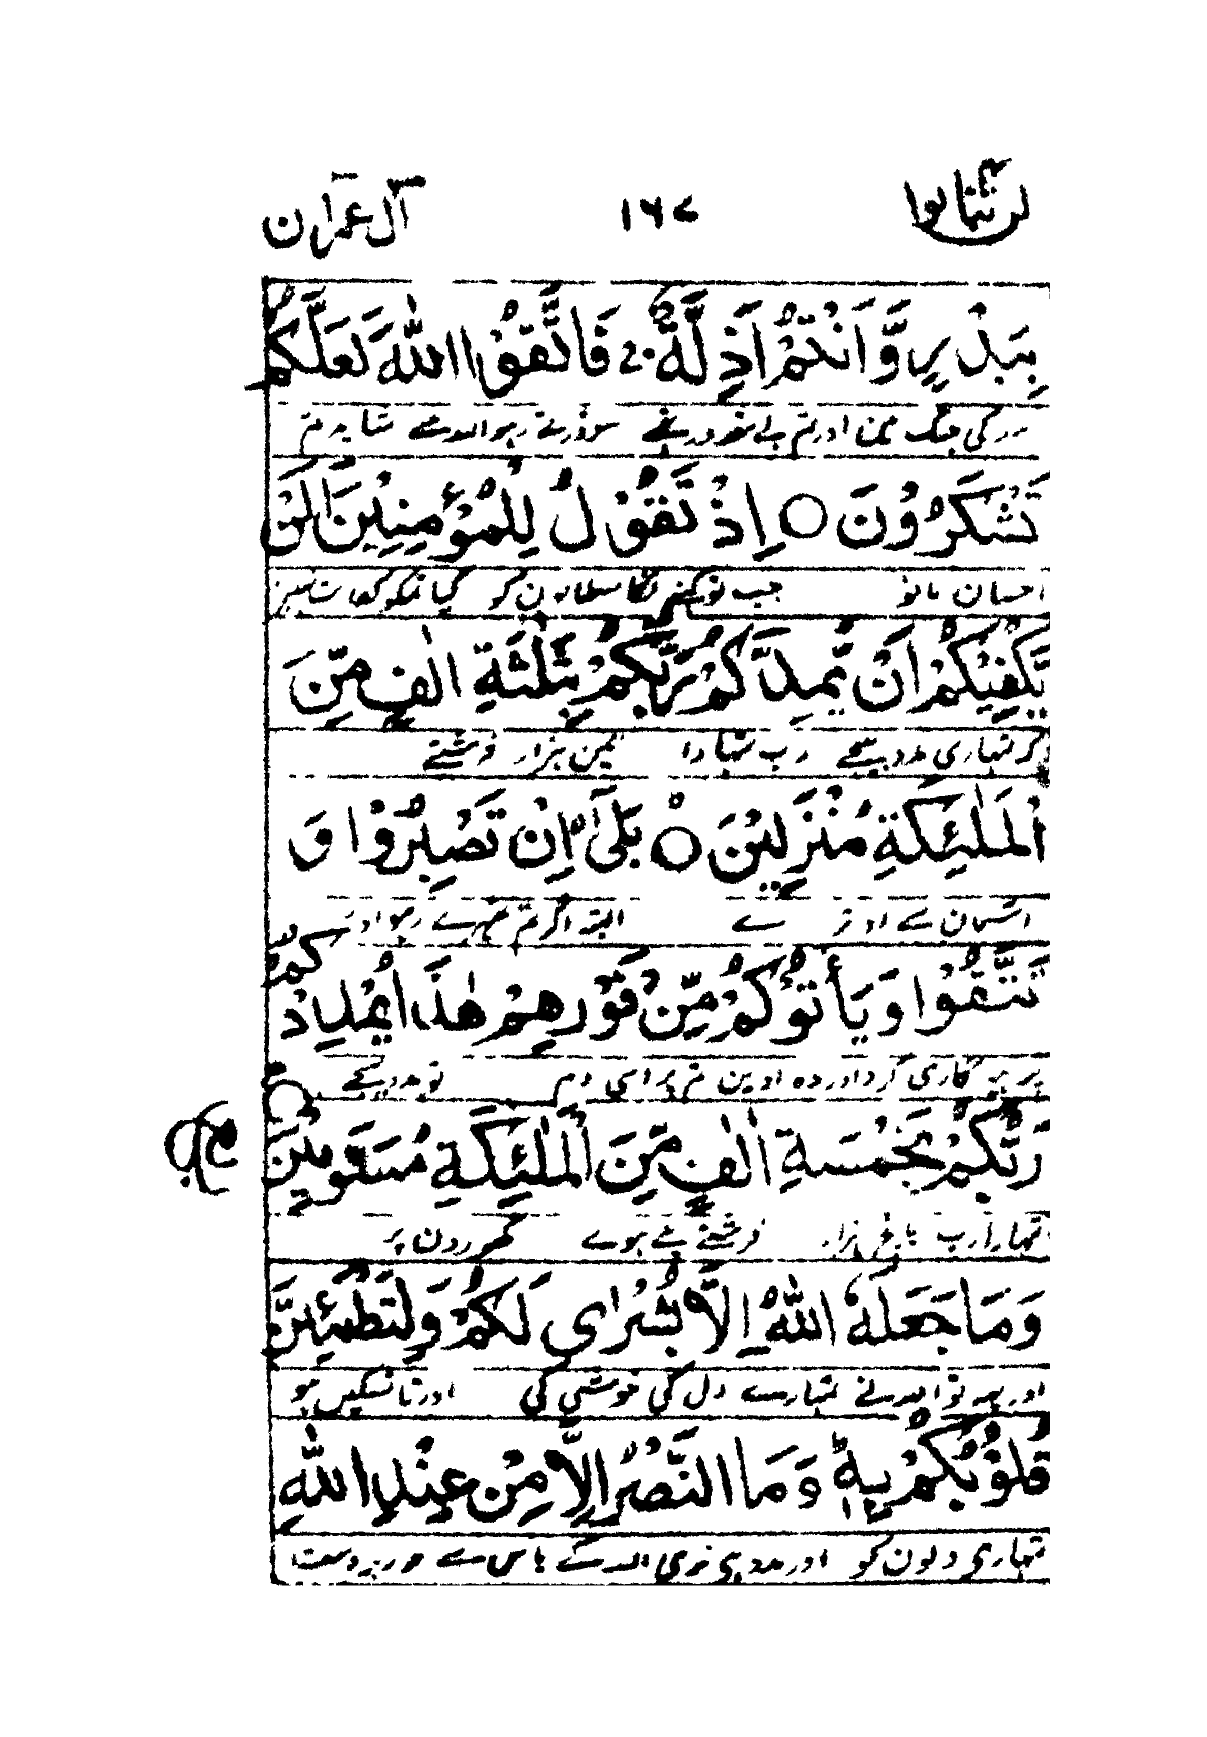 لن تنالوا ۱۶۷ آل عمران
بِبَدْرٍ وَّاَنْتُمْ اَذِلَّةٌ فَاتَّقُوا اللّٰهَ لَعَلَّكُمْ
بدر کی جنگ میں اور تم بے مقدور تھے سو ڈرتے رہو اللہ سے شاید تم
تَشْكُرُوْنَ ○ اِذْ تَقُوْلُ لِلْمُؤْمِنِيْنَ اَلَنْ
احسان مانو جب تو کہنے لگا مسلمانون کو کیا تمکو کفایت نہیں
يَّكْفِيَكُمْ اَنْ يُّمِدَّكُمْ رَبُّكُمْ بِثَلٰثَةِ اٰلٰفٍ مِّنَ
کہ تمہاری مدد بھیجے رب تمہارا تین ہزار فرشتے
الْمَلٰٓئِكَةِ مُنْزَلِيْنَ ○ بَلٰٓى اِنْ تَصْبِرُوْا وَ
آسمان سے اوترے البتہ اگر تم ٹھہرے رہو اور
تَتَّقُوْا وَيَاْتُوْكُمْ مِّنْ فَوْرِهِمْ هٰذَا يُمْدِدْكُمْ
پرہیزگاری کرو اور وہ اوین تم پر اسی دم تو مدد بھیجے
رَبُّكُمْ بِخَمْسَةِ اٰلٰفٍ مِّنَ الْمَلٰٓئِكَةِ مُسَوِّمِيْنَ ○
تمہارا رب پانچ ہزار فرشتے پلے ہوے گھوڑون پر
وَمَا جَعَلَهُ اللّٰهُ اِلَّا بُشْرٰى لَكُمْ وَلِتَطْمَئِنَّ
اور یہ تو اللہ نے تمہارے دل کی خوشی کی اور تا تسکین ہو
قُلُوْبُكُمْ بِهٖ ؕ وَمَا النَّصْرُ اِلَّا مِنْ عِنْدِ اللّٰهِ
تمہاری دلون کو اور مدد ہی نری اللہ کے پاس سے جو زبردست